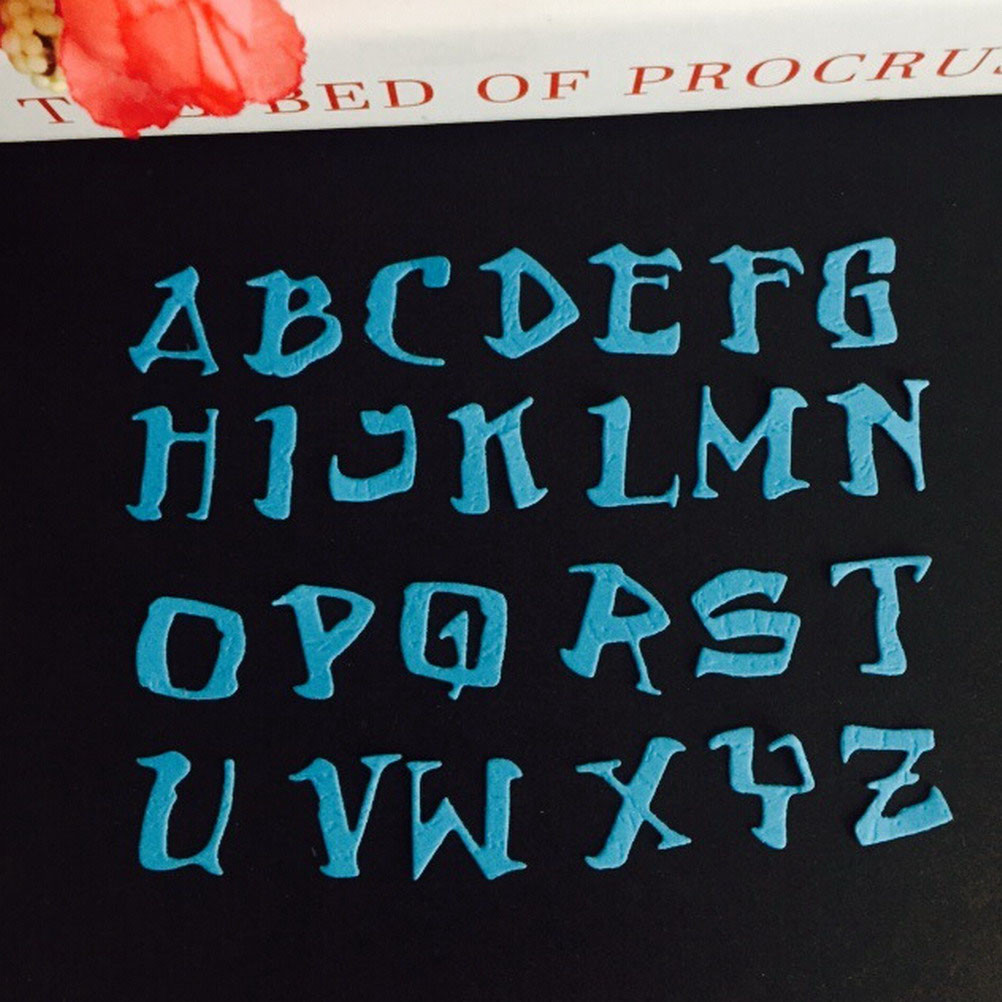 BED OF
ABCDEFG
HIJKLMN
OPQRST
UVWXYZ